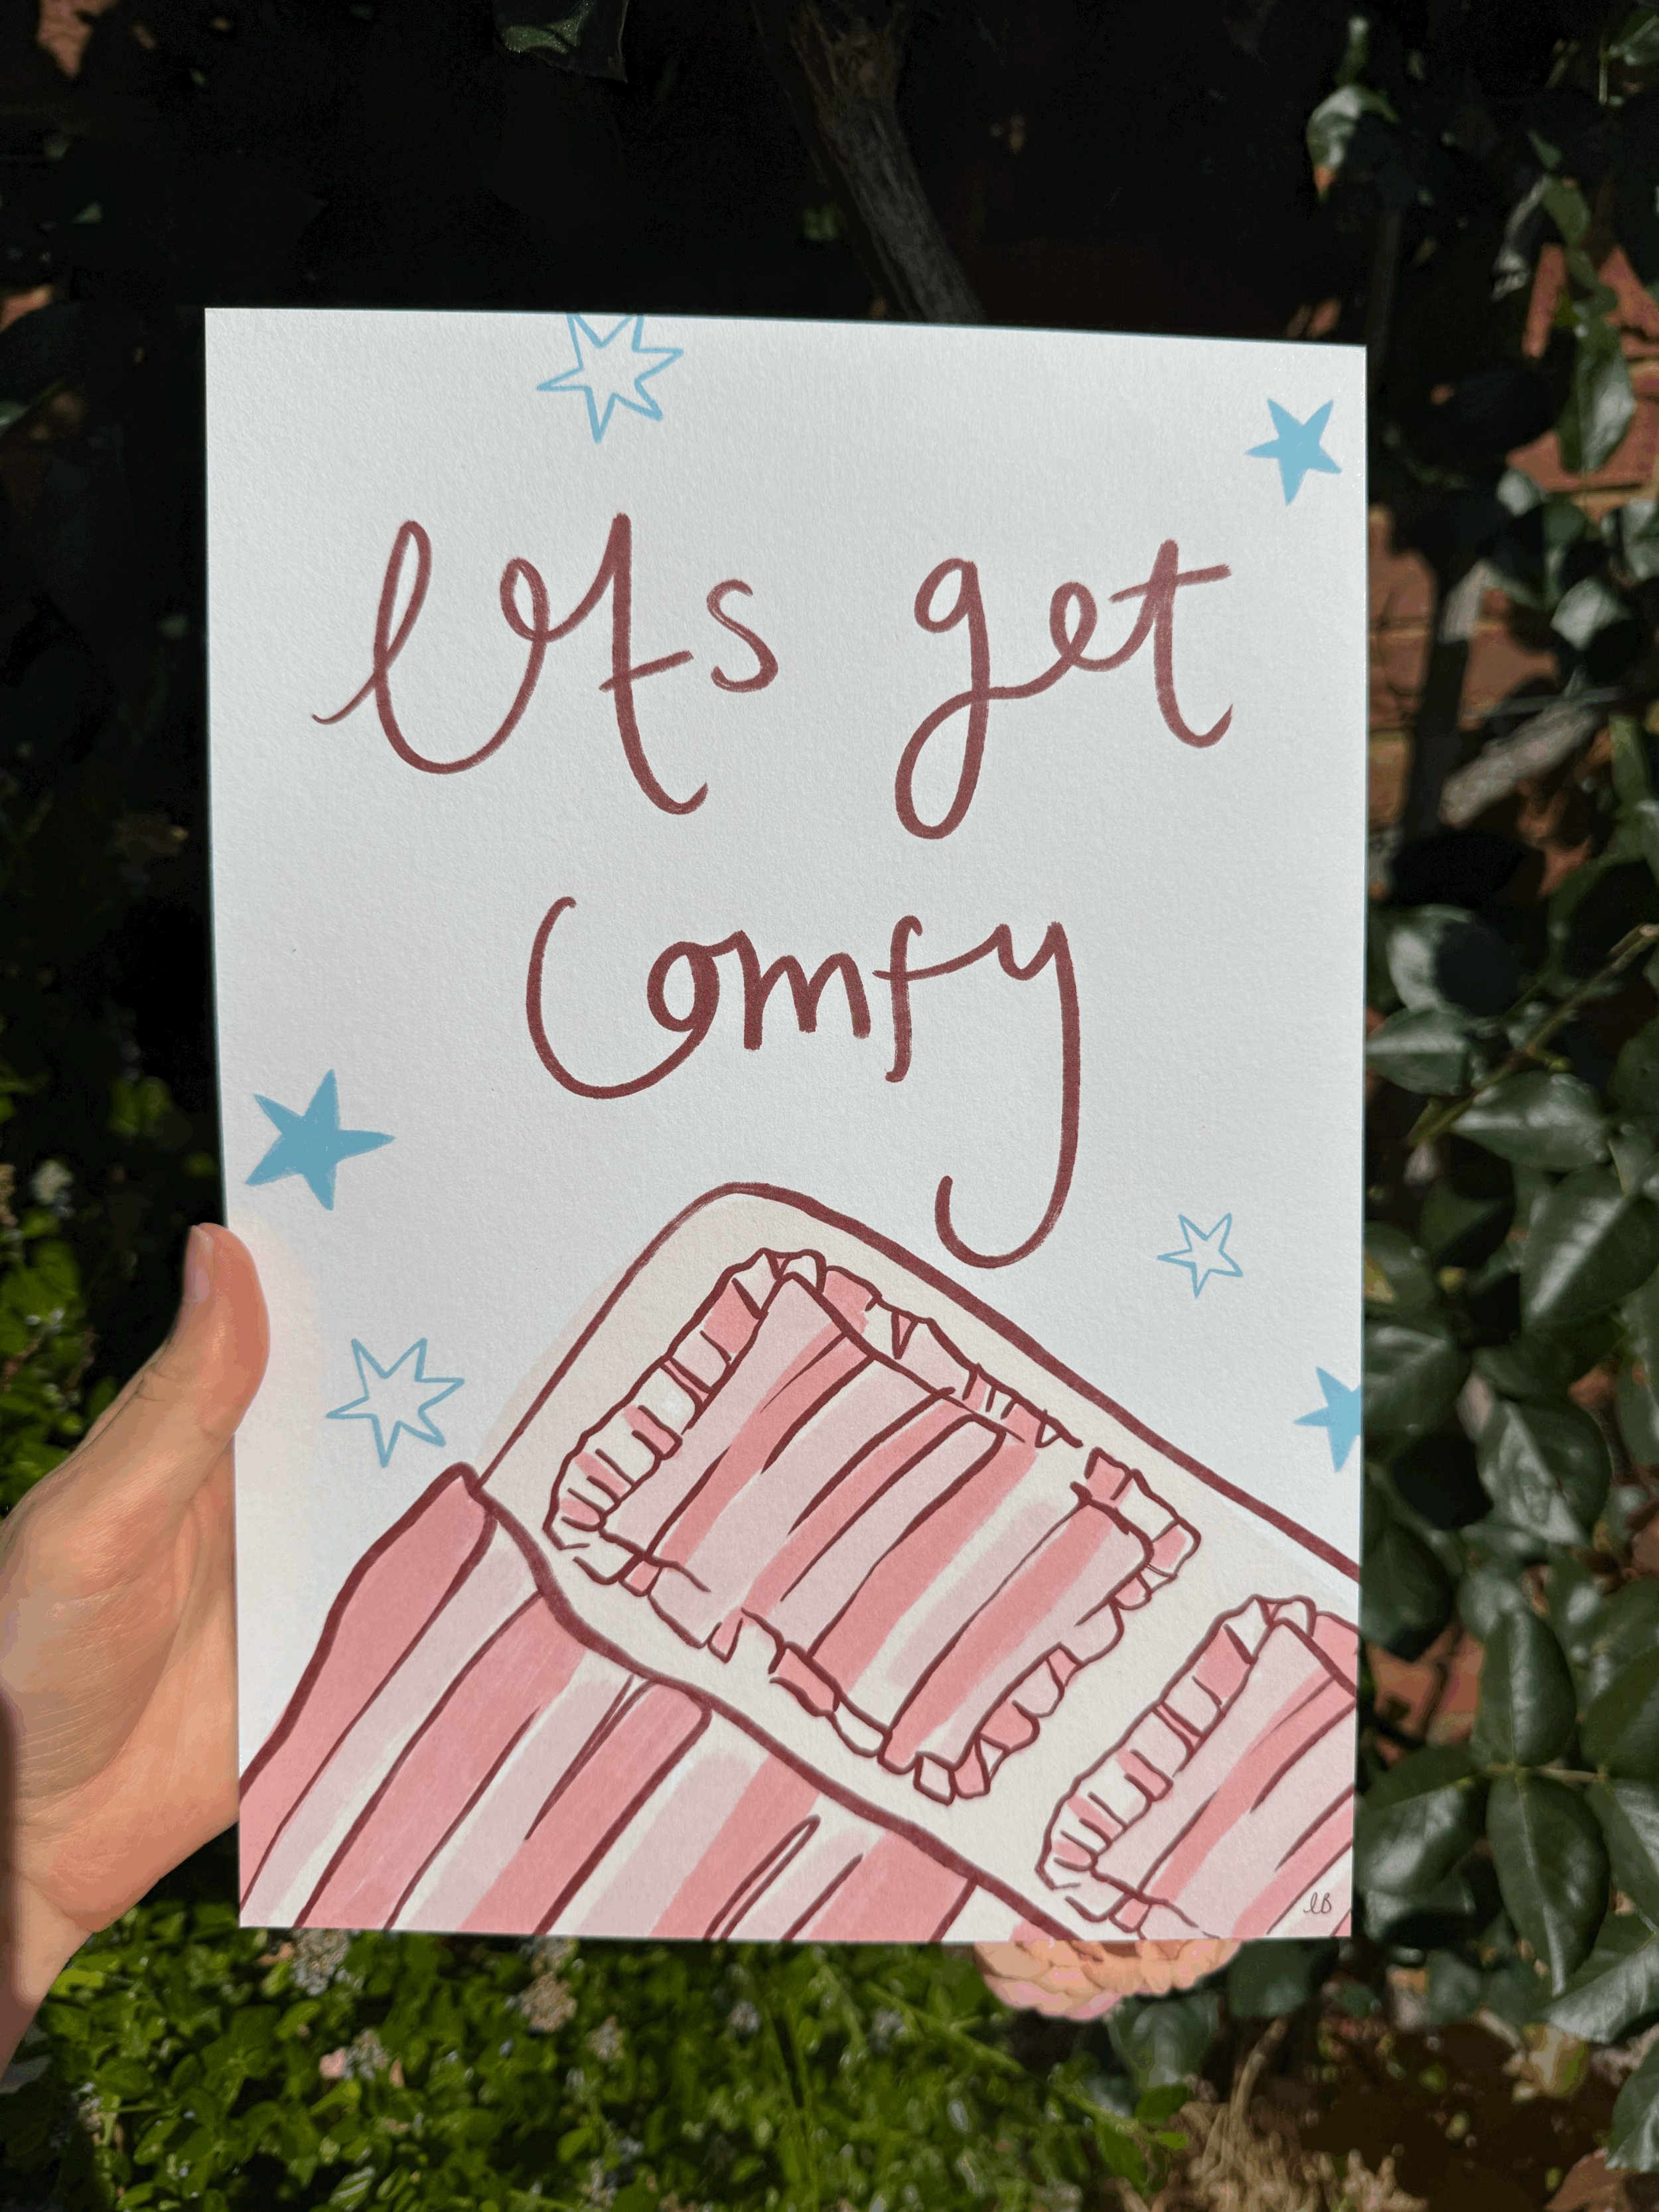 lets get
comfy
lB